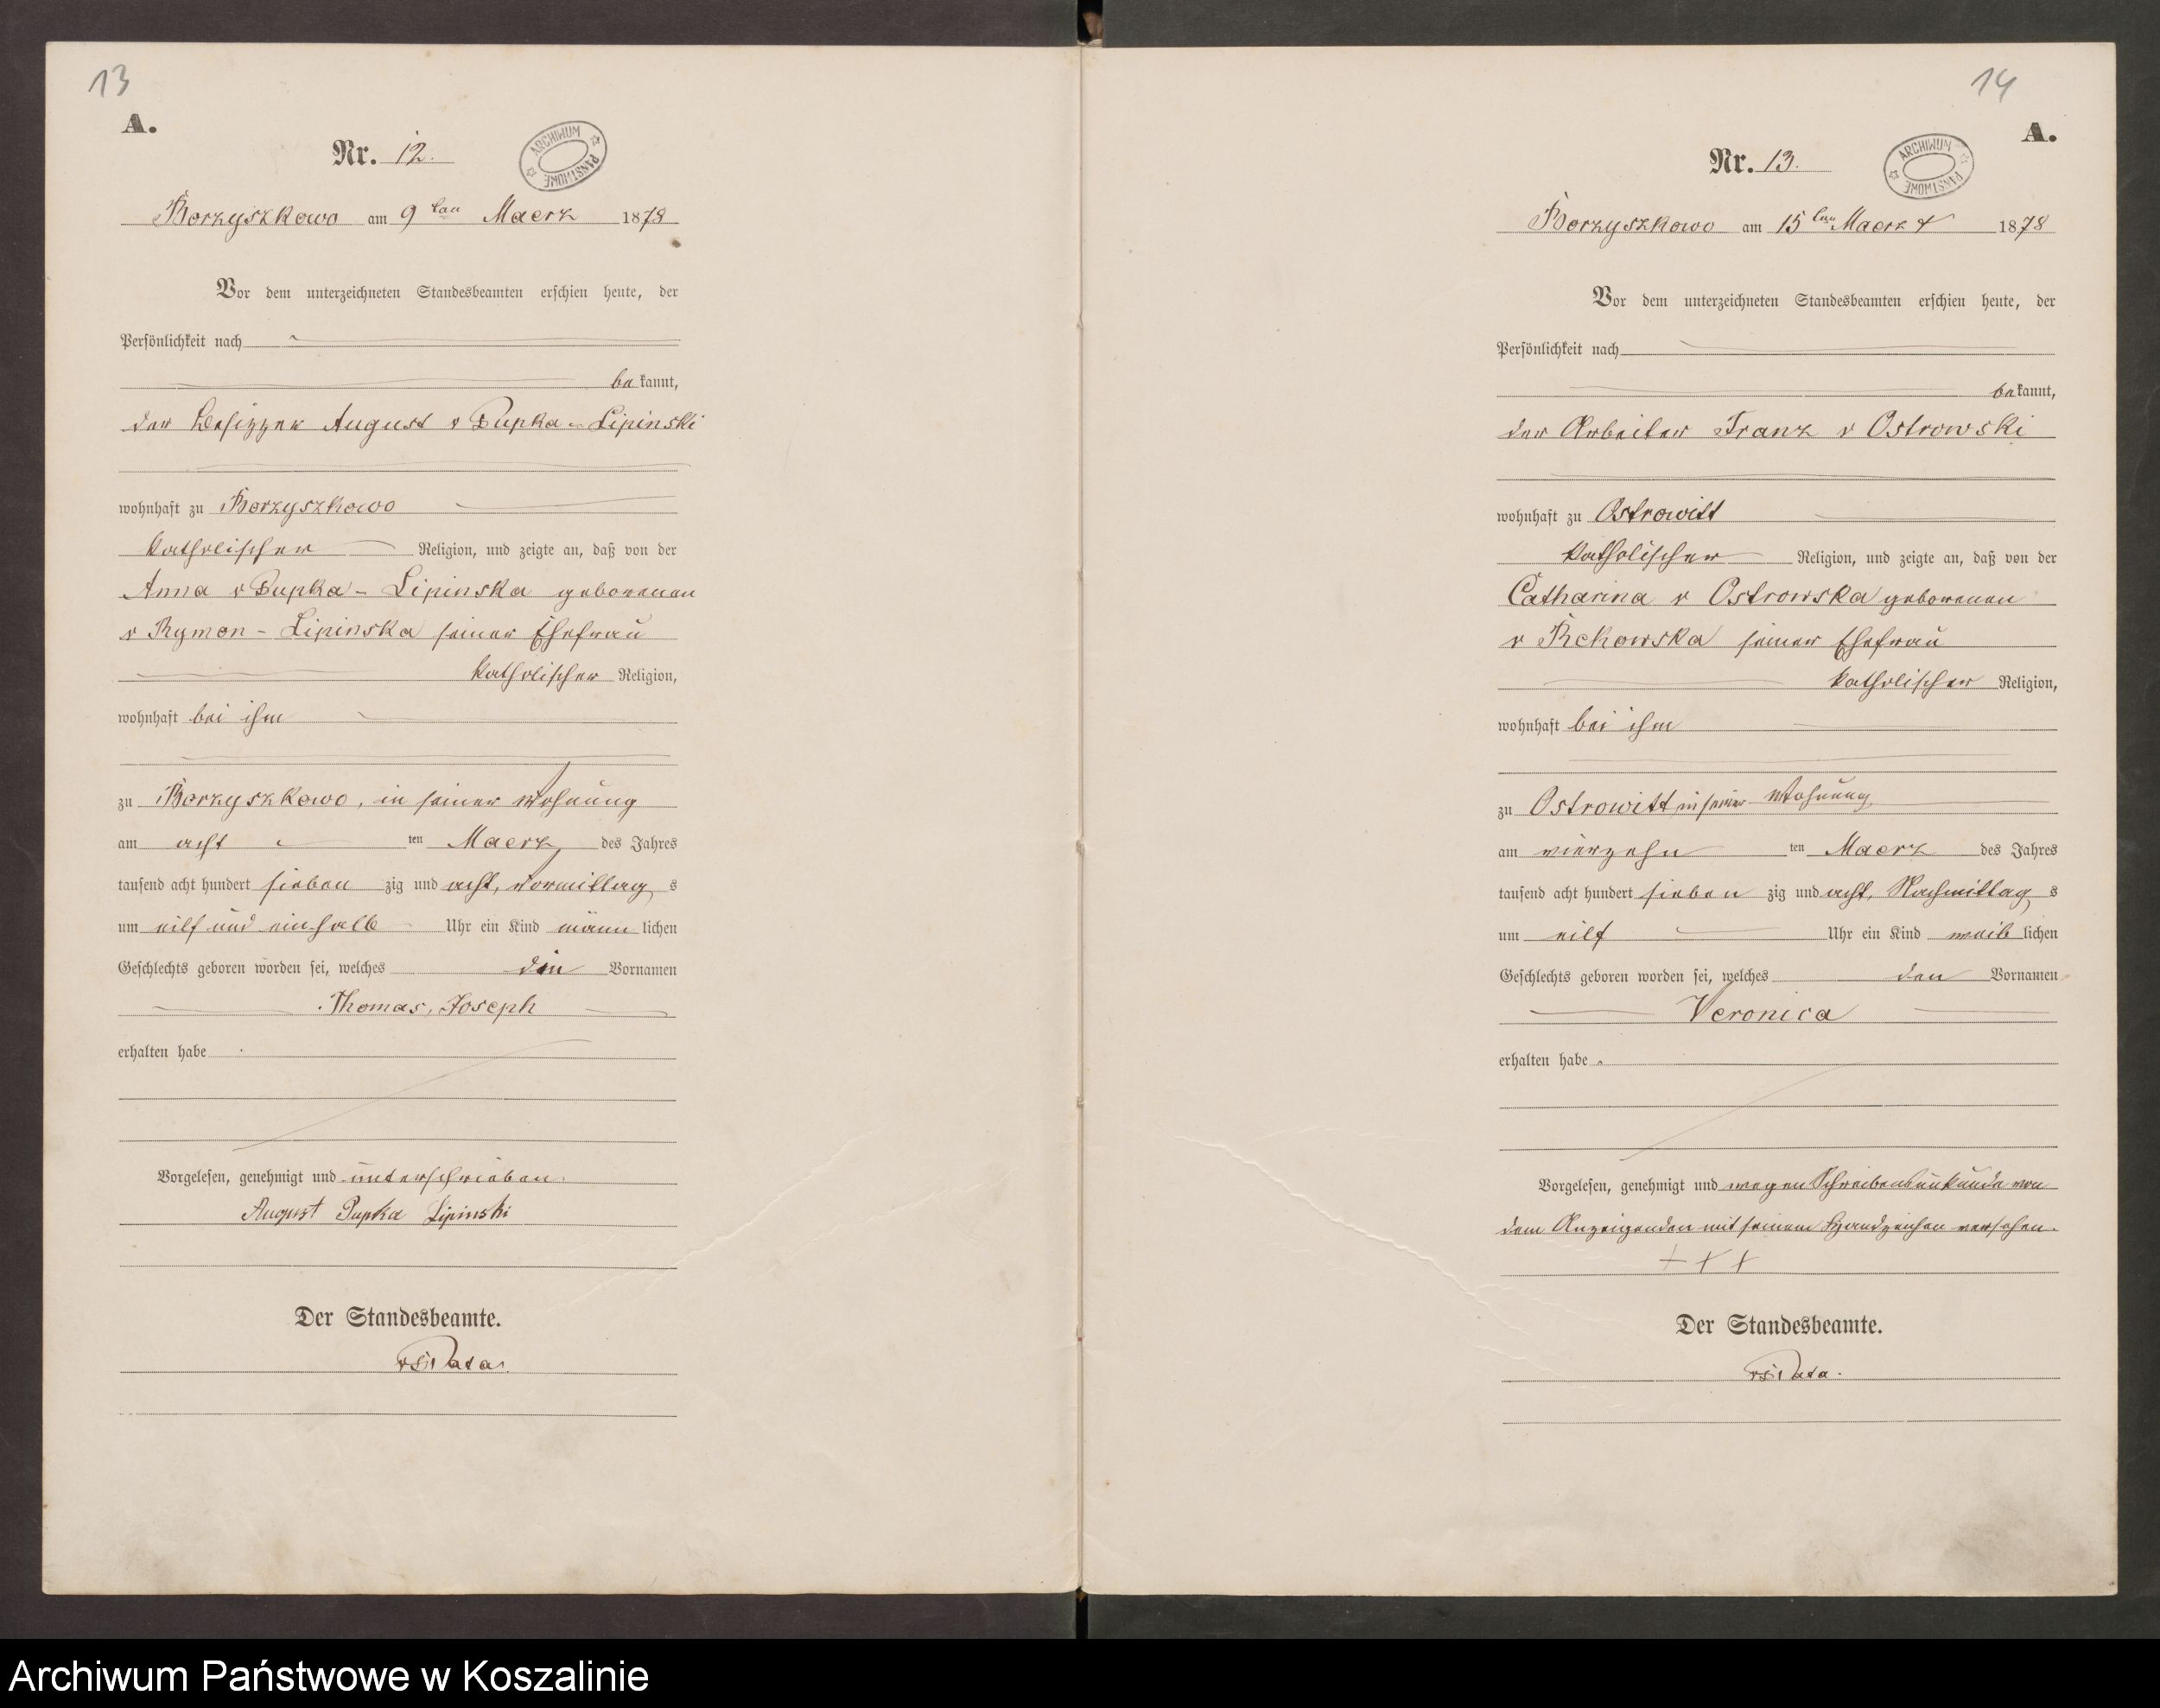 13
A.
Nr. 12.
ARCHIWUM PAŃSTWOWE
Borzyszkowo am 9 ten Maerz 1878
Vor dem unterzeichneten Standesbeamten erschien heute, der
Persönlichkeit nach
bekannt,
der Besitzer August v Pupka-Lipinski
wohnhaft zu Borzyszkowo
katholischer Religion, und zeigte an, daß von der
Anna v Pupka-Lipinska geborenen
v Rymon-Lipinska seiner Ehefrau
katholischer Religion,
wohnhaft bei ihm
zu Borzyszkowo, in seiner Wohnung
am acht ten Maerz des Jahres
tausend acht hundert siebenzig und acht, Vormittags
um eilf und einhalb Uhr ein Kind männlichen
Geschlechts geboren worden sei, welches die Vornamen
Thomas, Joseph
erhalten habe.
Vorgelesen, genehmigt und unterschrieben.
August Pupka Lipinski
Der Standesbeamte.
14
A.
Nr. 13.
ARCHIWUM PAŃSTWOWE
Borzyszkowo am 15 ten Maerz 1878
Vor dem unterzeichneten Standesbeamten erschien heute, der
Persönlichkeit nach
bekannt,
der Arbeiter Franz v Ostrowski
wohnhaft zu Ostrowitt
katholischer Religion, und zeigte an, daß von der
Catharina v Ostrowska geborenen
v Rekowska seiner Ehefrau
katholischer Religion,
wohnhaft bei ihm
zu Ostrowitt in seiner Wohnung
am vierzehn ten Maerz des Jahres
tausend acht hundert siebenzig und acht, Nachmittags
um eilf Uhr ein Kind weiblichen
Geschlechts geboren worden sei, welches den Vornamen
Veronica
erhalten habe.
Vorgelesen, genehmigt und wegen Schreibensunkunde von
dem Anzeigenden mit seinem Handzeichen versehen.
+++
Der Standesbeamte.
Archiwum Państwowe w Koszalinie